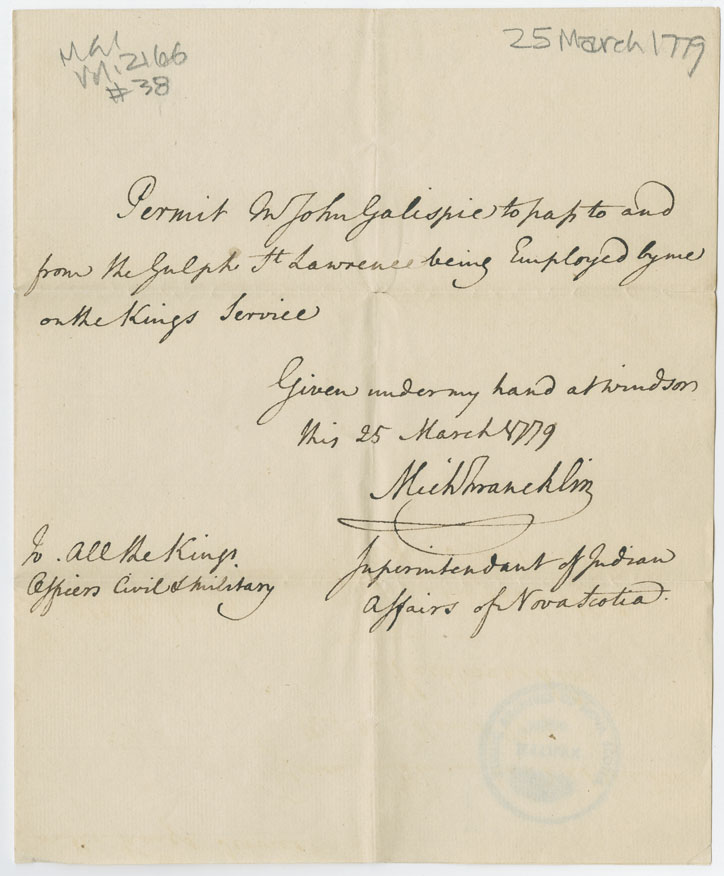 MG1
Vol. 2166
#38
25 March 1779
Permit Mr John Galispie to pass to and
from the Gulph St Lawrence being Employed by me
on the Kings Service
Given under my hand at windsor
this 25 March 1779
Mich Francklin
Superintendant of Indian
Affairs of Nova Scotia.
To All the Kings
Officers Civil & Military